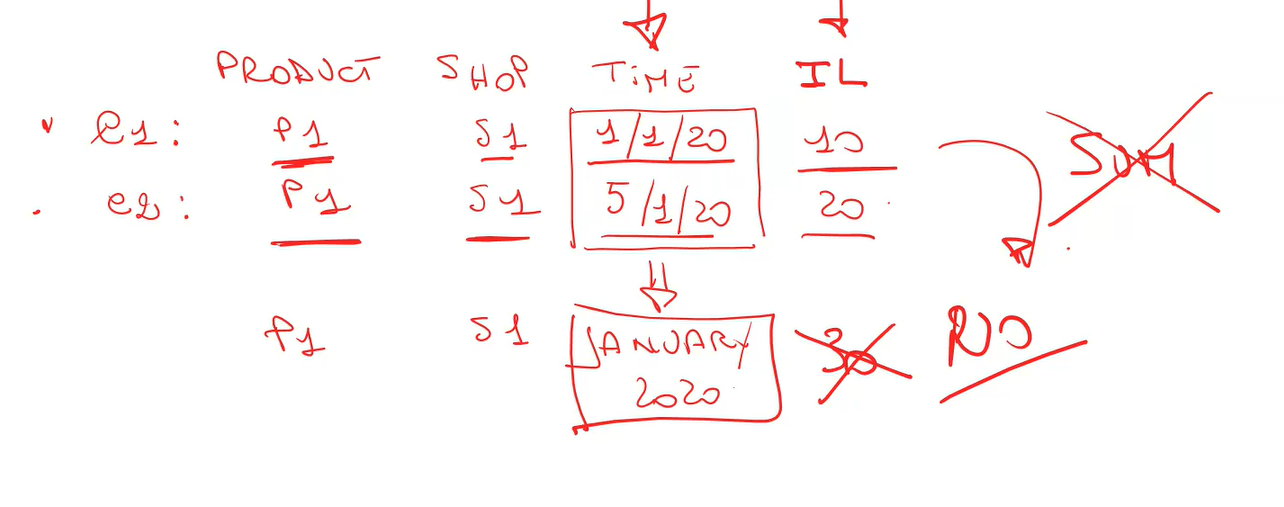 PRODUCT SHOP TIME IL
e1: P1 S1 1/1/20 10 SUM
e2: P1 S1 5/1/20 20
P1 S1 JANUARY 30
2020